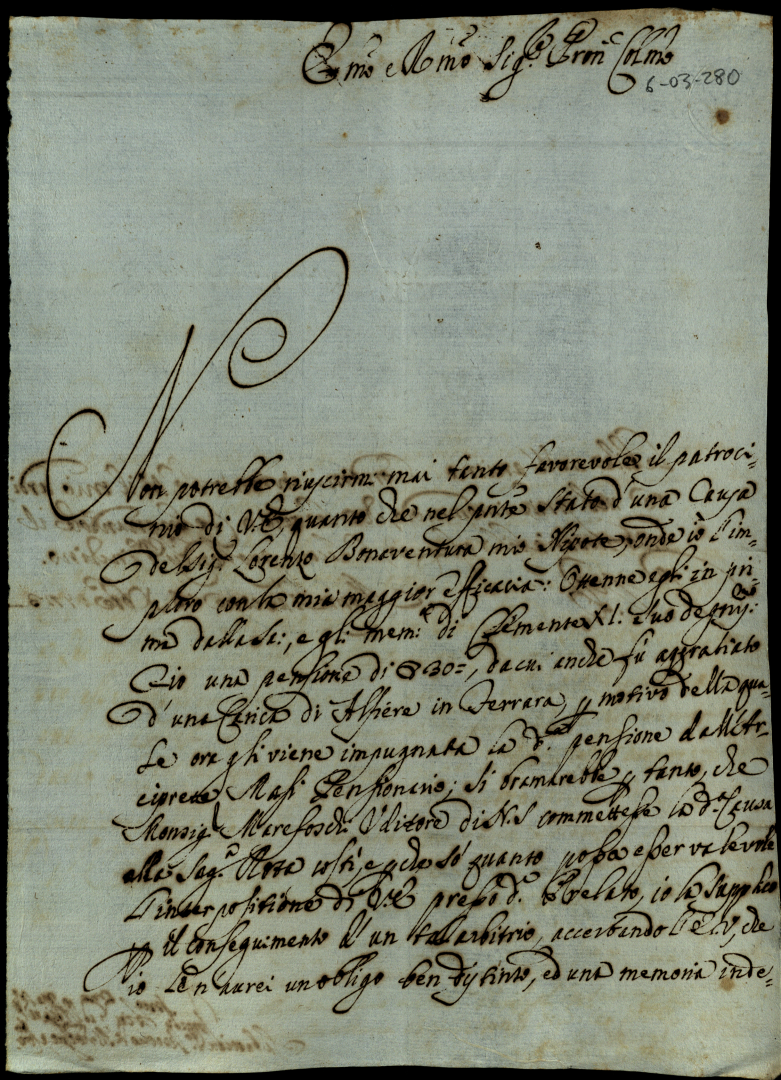 Emo e Rmo Sig.r Pron Colmo
6-03-280
Non potrebbe riuscirmi mai tanto favorevole il patroci-
nio di V.E. quanto che nel pnte Stato d'una Causa
del Sig.r Lorenzo Bonaventura mio Nipote, onde io l'im-
ploro con la mia maggior efficacia: Ottenne egli in pri-
ma dalla Sa:, e gli: mem:a di Clemente XI:
Cio una pensione di 30=, da cui anche fù aggratiato
d'una Carica di Alfiere in Ferrara, p motivo della qua-
le ora gli viene impugnata la d.a pensione dall'Ar-
ciprete Masi Pensionario; si bramarebbe p tanto, che
Monsig.r Marefoschi Uditore di N.S commettesse la d.a Causa
alla Sag.a Rota costì, e p che sò quanto possa esser valevole
l'interpositione di V.E. presso d.o Prelato, io la supplico
p il conseguimento d'un tal arbitrio, accertando l'E.V., che
io Le n'aurei un obligo ben distinto, ed una memoria inde-